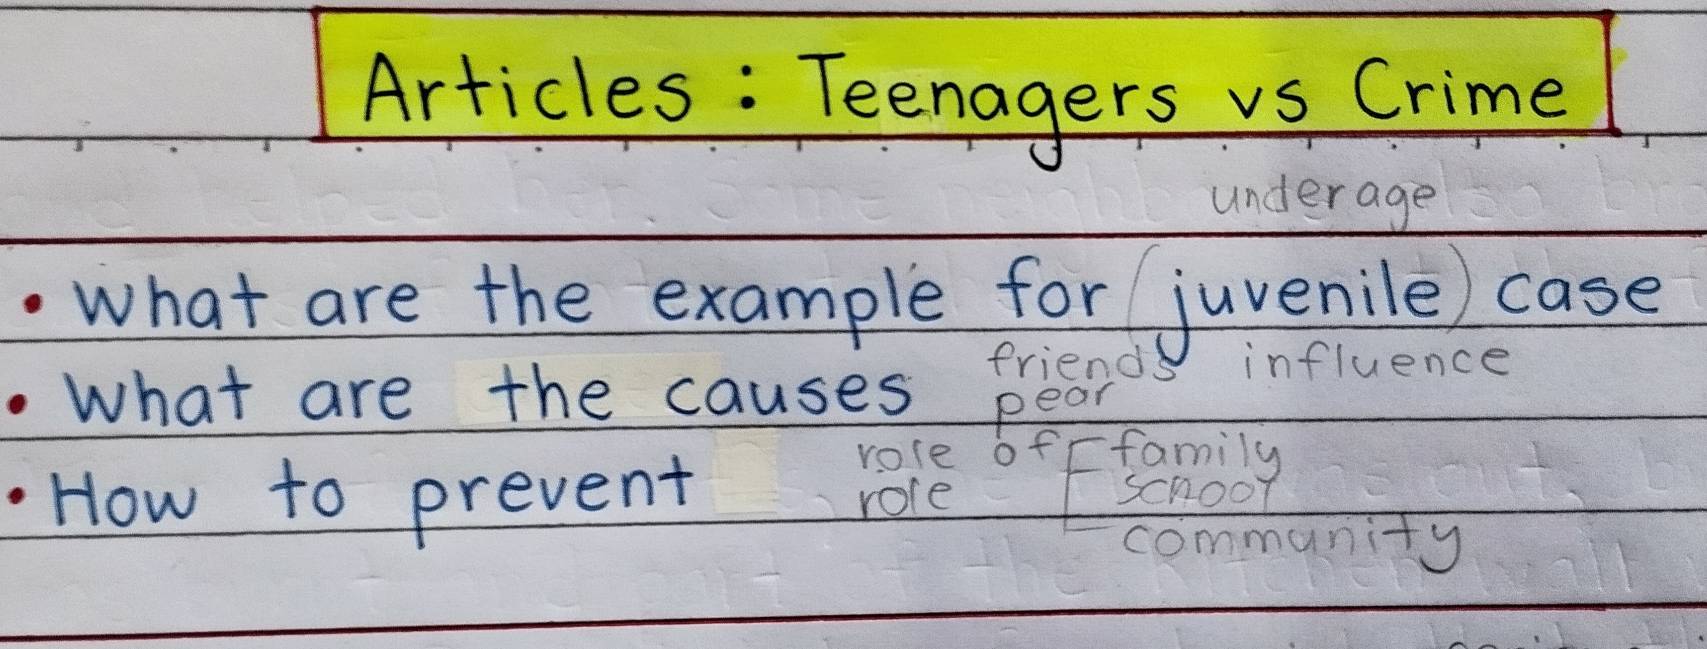 Articles : Teenagers vs Crime
underage
• What are the example for (juvenile) case
friends influence
• What are the causes pear
role of family
• How to prevent role school
community